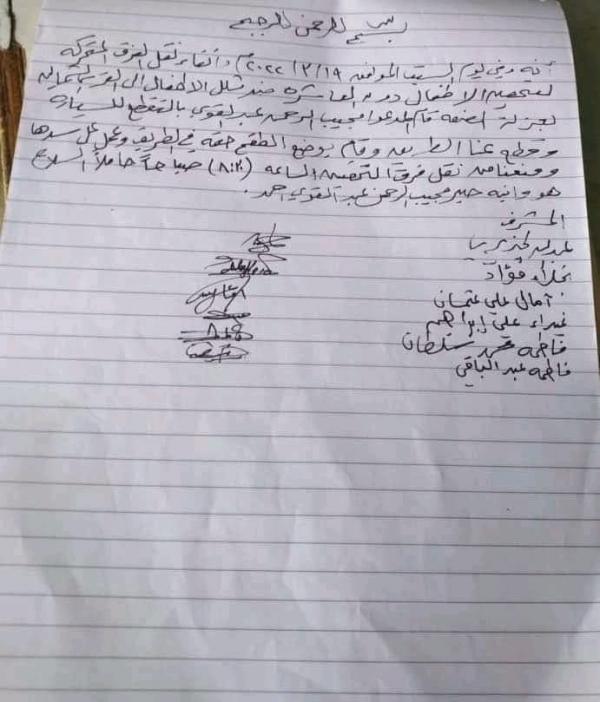 بسم الله الرحمن الرحيم
أنه وفي يوم السبت الموافق ٢٠٢٢/٣/١٩م وأثناء نقل الفرق المتحركة
لتحصين الاطفال دورة العاشرة ضد شلل الاطفال الى القرى التابعة
لعزلة الضفة قام المدعو مجيب الرحمن عبدالقوي بالتقطع للسيارة
وقطع عنا الطريق وقام بوضع الطقم حقه في الطريق وعمل على سدها
ومنعنا من نقل فرق التحصين الساعة صباحاً حاملاً السلاح
هو وابنه مجيب الرحمن عبد القوي احمد.
المشرف
فؤاد
آمال علي عثمان
علي إبراهيم
فاطمة محمد سلطان
فاطمة عبد الباقي